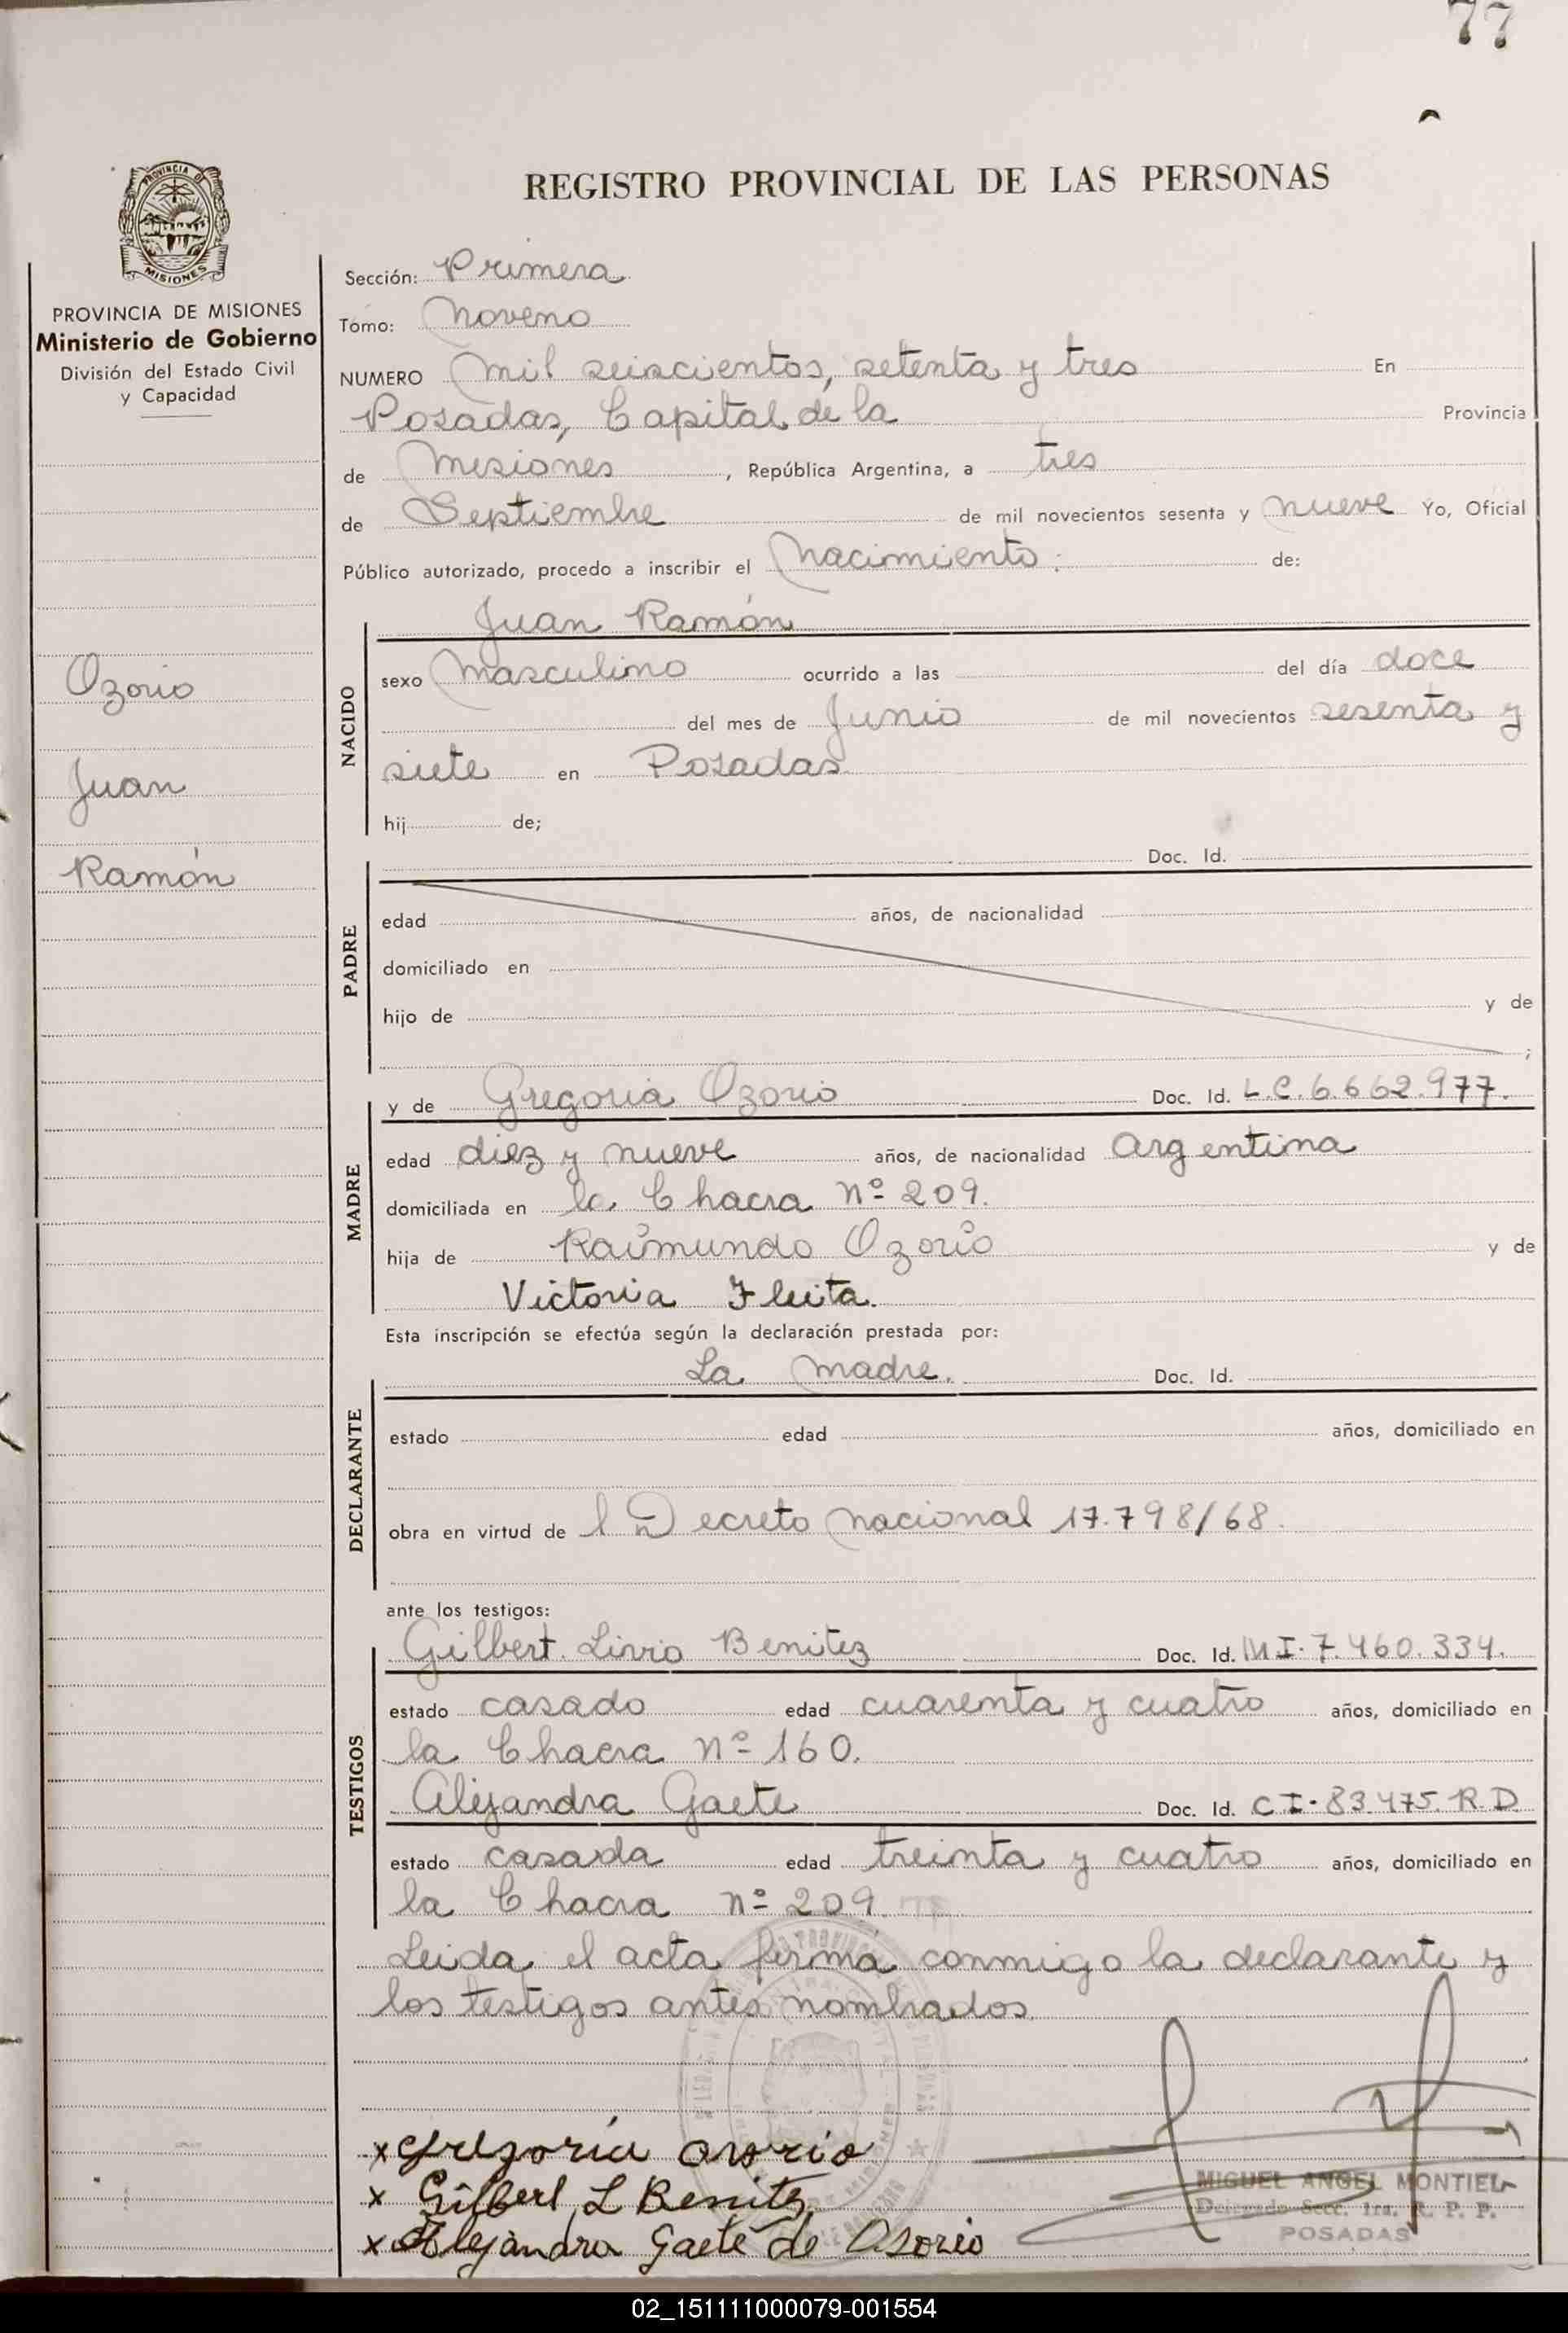 77
REGISTRO PROVINCIAL DE LAS PERSONAS
PROVINCIA DE MISIONES
Ministerio de Gobierno
División del Estado Civil
y Capacidad
Ozorio
Juan
Ramón
Sección: Primera
Tomo: Noveno
NUMERO Mil seiscientos, setenta y tres En
Posadas, Capital de la Provincia
de Misiones, República Argentina, a tres
de Septiembre de mil novecientos sesenta y nueve Yo, Oficial
Público autorizado, procedo a inscribir el Nacimiento: de:
NACIDO
Juan Ramón
sexo Masculino ocurrido a las del día doce
del mes de Junio de mil novecientos sesenta y
siete en Posadas
hij de;
PADRE
Doc. Id.
edad años, de nacionalidad
domiciliado en
hijo de y de
;
MADRE
y de Gregoria Ozorio Doc. Id. L.C.6.662.977.
edad diez y nueve años, de nacionalidad Argentina
domiciliada en la Chacra Nº 209.
hija de Raimundo Ozorio y de
Victoria Fleita.
Esta inscripción se efectúa según la declaración prestada por:
DECLARANTE
La Madre. Doc. Id.
estado edad años, domiciliado en
obra en virtud de l Decreto Nacional 17.798/68.
ante los testigos:
TESTIGOS
Gilbert Livio Benitez Doc. Id. MI.7.460.334.
estado casado edad cuarenta y cuatro años, domiciliado en
la Chacra Nº 160.
Alejandra Gaete Doc. Id. CI.83.475.R.D.
estado casada edad treinta y cuatro años, domiciliado en
la Chacra Nº 209.
Leida el acta firma conmigo la declarante y
los testigos antes nombrados.
x Gregoria Osorio
x Gilbert L Benitez
x Alejandra Gaete de Osorio
MIGUEL ANGEL MONTIEL
Delegado Secc. 1ra. R. P. P.
POSADAS
02_151111000079-001554